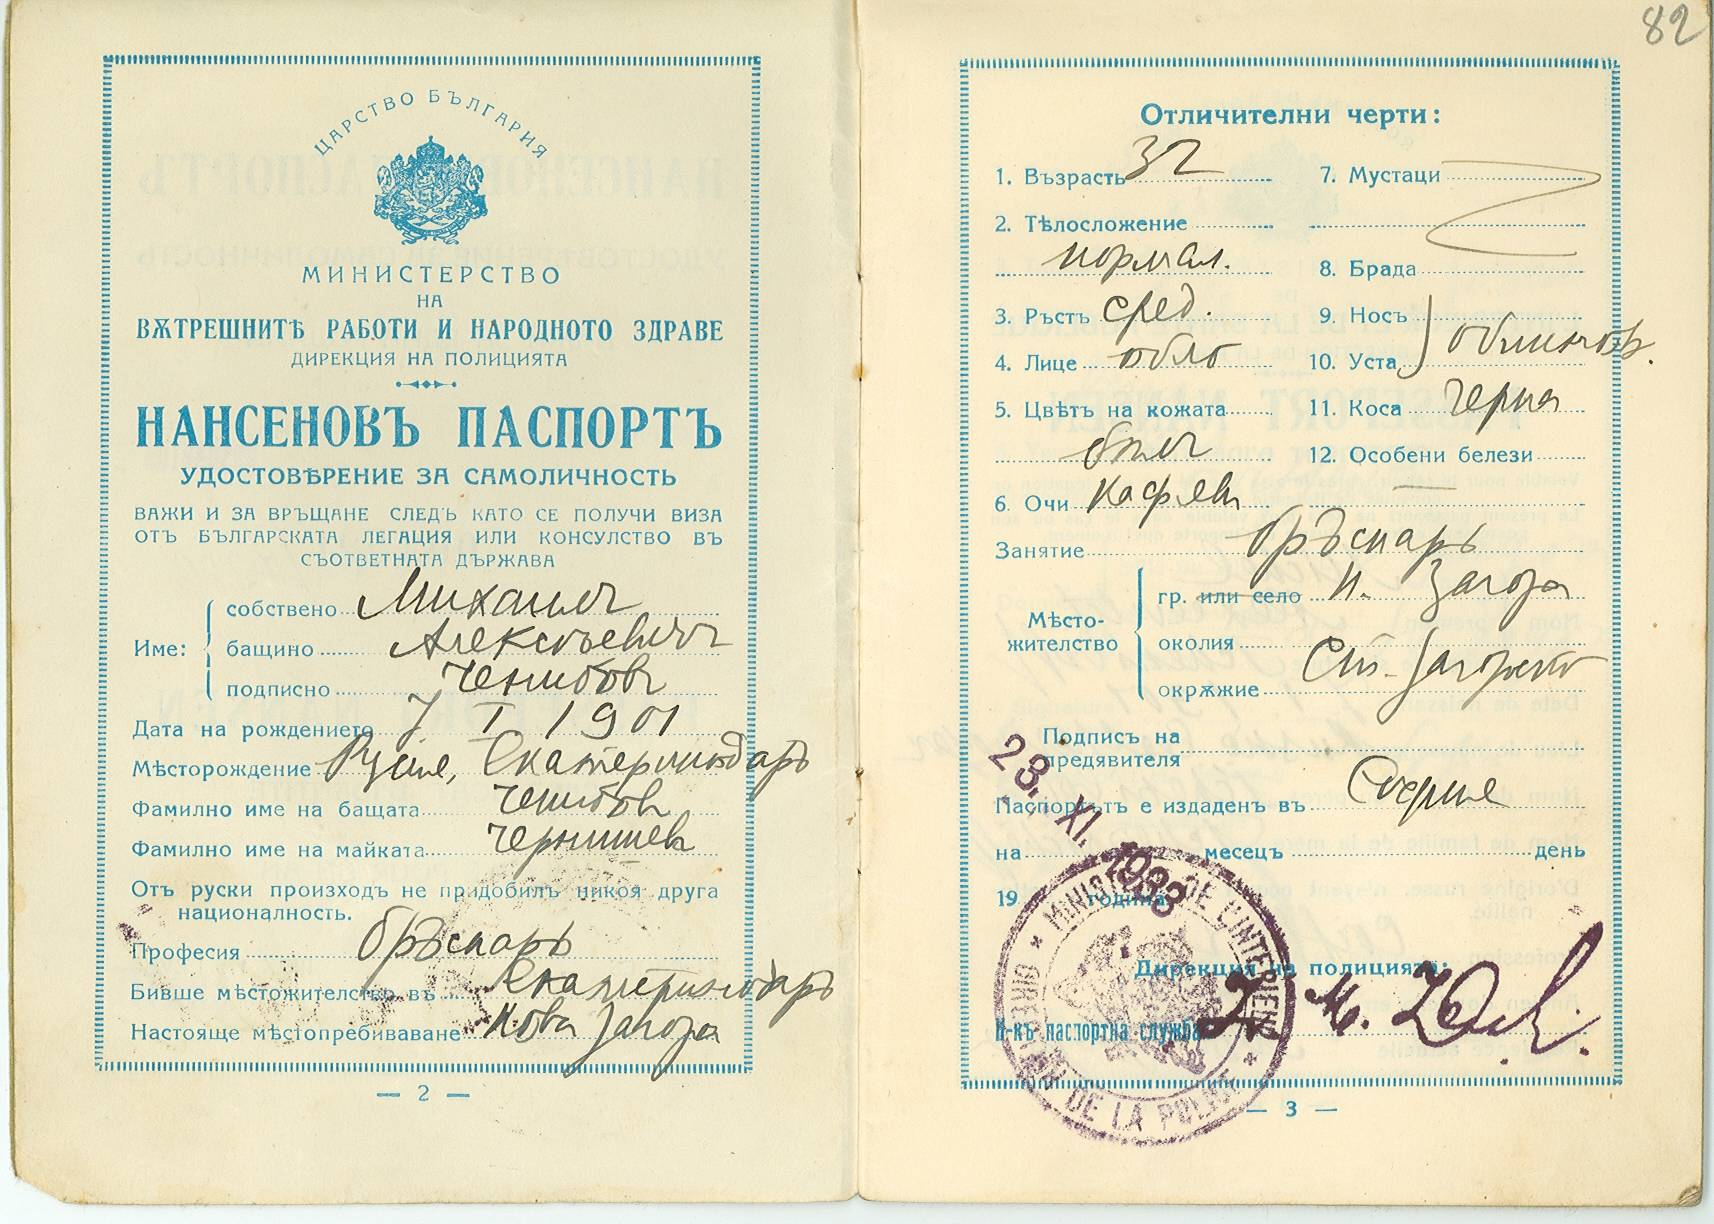 82
ЦАРСТВО БЪЛГАРИЯ
МИНИСТЕРСТВО
НА
ВѪТРЕШНИТѢ РАБОТИ И НАРОДНОТО ЗДРАВЕ
ДИРЕКЦИЯ НА ПОЛИЦИЯТА
НАНСЕНОВЪ ПАСПОРТЪ
УДОСТОВѢРЕНИЕ ЗА САМОЛИЧНОСТЬ
ВАЖИ И ЗА ВРЪЩАНЕ СЛЕДЪ КАТО СЕ ПОЛУЧИ ВИЗА
ОТЪ БЪЛГАРСКАТА ЛЕГАЦИЯ ИЛИ КОНСУЛСТВО ВЪ
СЪОТВЕТНАТА ДЪРЖАВА
Име:
собствено Михаилъ
бащино Алексѣевичъ
подписно
Дата на рождението 7 I 1901
Мѣсторождение Русия, Екатеринодаръ
Фамилно име на бащата
Фамилно име на майката
Отъ руски произходъ не придобилъ никоя друга
националность.
Професия бръснаръ
Бивше мѣстожителство въ Екатеринодаръ
Настояще мѣстопребиваване Нова Загора
— 2 —
Отличителни черти:
1. Възрасть 32
2. Тѣлосложение
нормал.
3. Ръстъ сред.
4. Лице обло
5. Цвѣтъ на кожата
бѣлъ
6. Очи кафяви
7. Мустаци
8. Брада
9. Носъ
10. Уста обикнов.
11. Коса черна
12. Особени белези
—
Занятие бръснаръ
Мѣсто-
жителство
гр. или село Н. Загора
околия
окрѫжие Ст. Загорско
Подписъ на
предявителя
Паспортътъ е издаденъ въ София
на месецъ день
19 година
23. XI. 1933
Дирекция на полицията:
Н-къ паспортна служба
MINISTÈRE DE L'INTÉRIEUR
DIRECTION DE LA POLICE
— 3 —